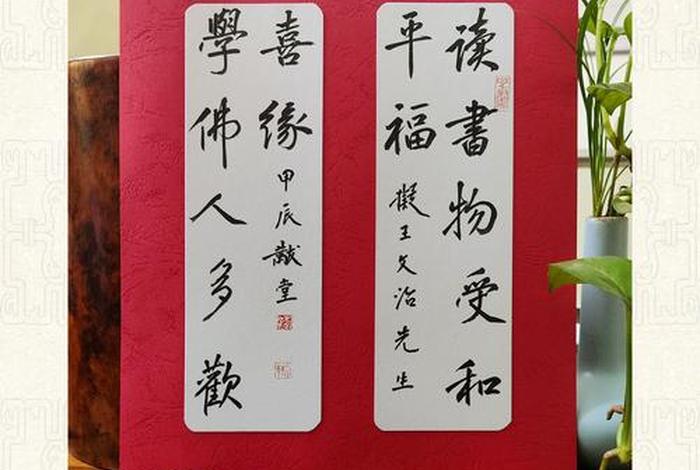 读書物受和
平福
擬王文治先生
學佛人多歡
喜缘
甲辰猷堂